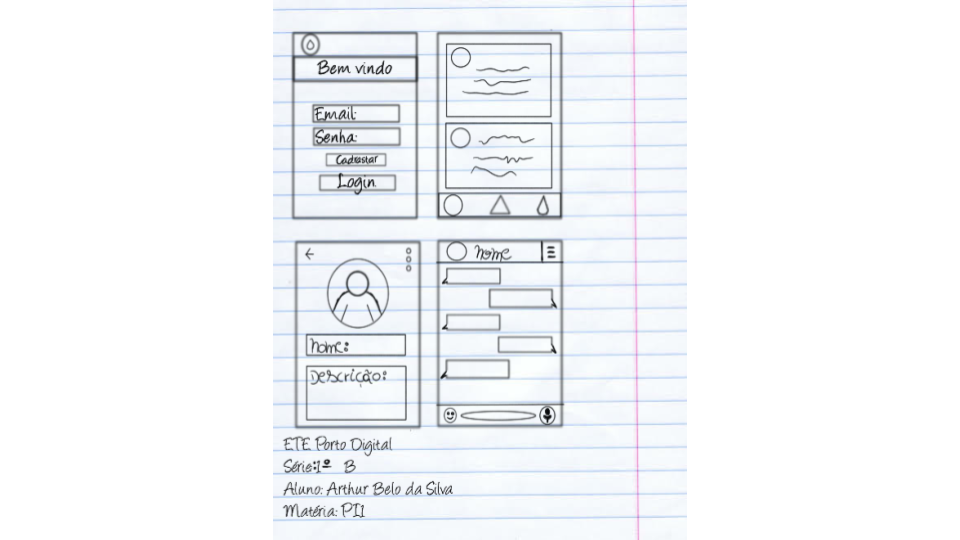 Bem vindo
Email:
Senha:
Cadastar
Login
nome:
Descrição:
nome
ETE Porto Digital
Série:1º B
Aluno: Arthur Belo da Silva
Matéria: PI1